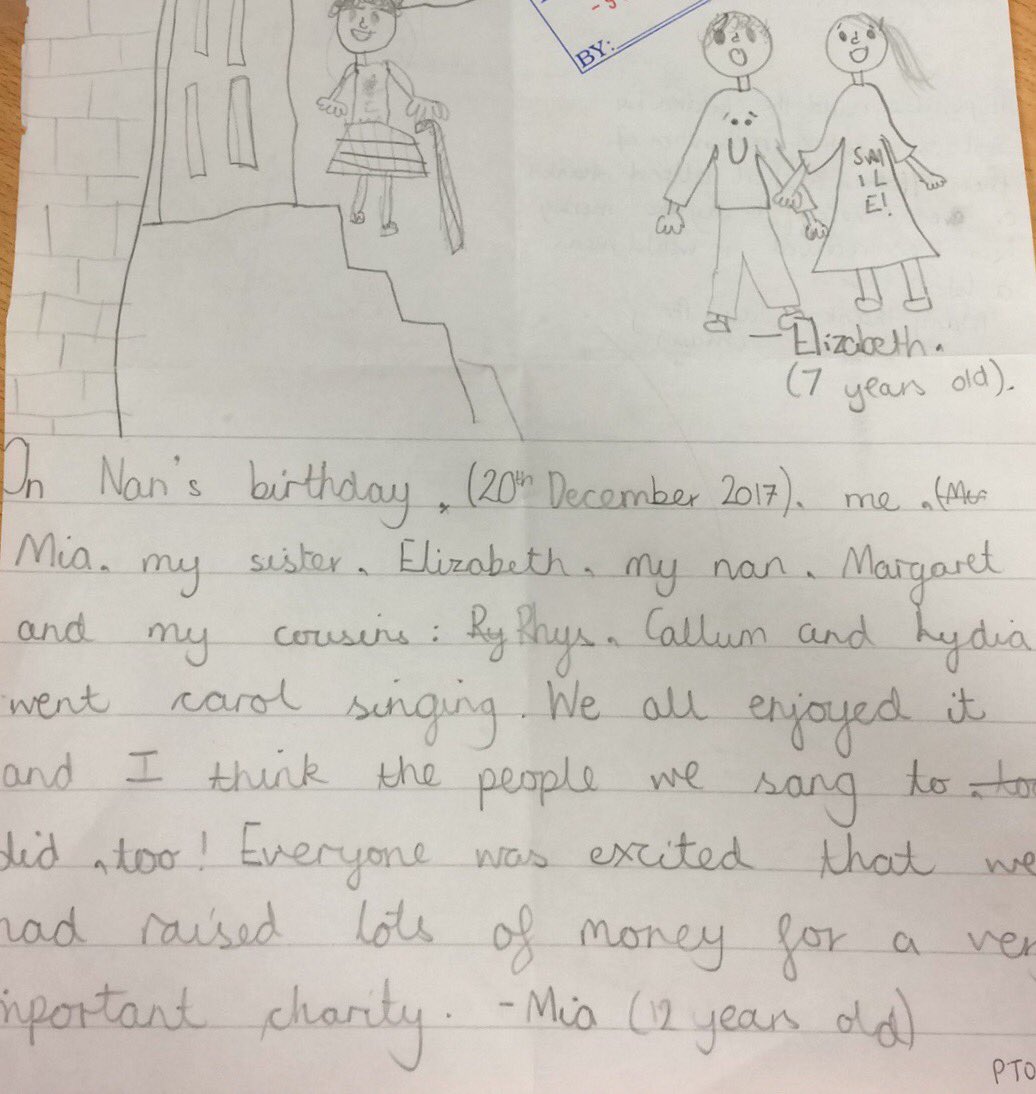 BY:
SMI
IL
E!
– Elizabeth.
(7 years old).
On Nan's birthday, (20th December 2017), me,
Mia, my sister, Elizabeth, my nan, Margaret
and my cousins: Ry Rhys, Callum and Lydia
went carol singing. We all enjoyed it
and I think the people we sang to, too
did, too! Everyone was excited that we
had raised lots of money for a ver
mportant charity. -Mia (12 years old)
PTO